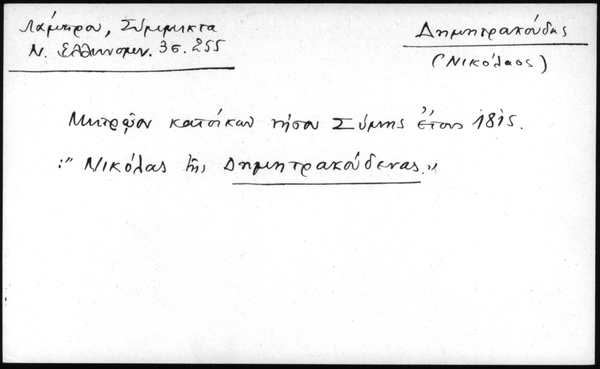 Λάμπρου, Σύμμικτα
Ν. Ελληνομν. 3 σ. 255
Δημητρακούδας
(Νικόλαος)
Μητρῷον κατοίκων νήσου Σύμης ἔτους 1815.
:" Νικόλας τῆς Δημητρακούδενας."